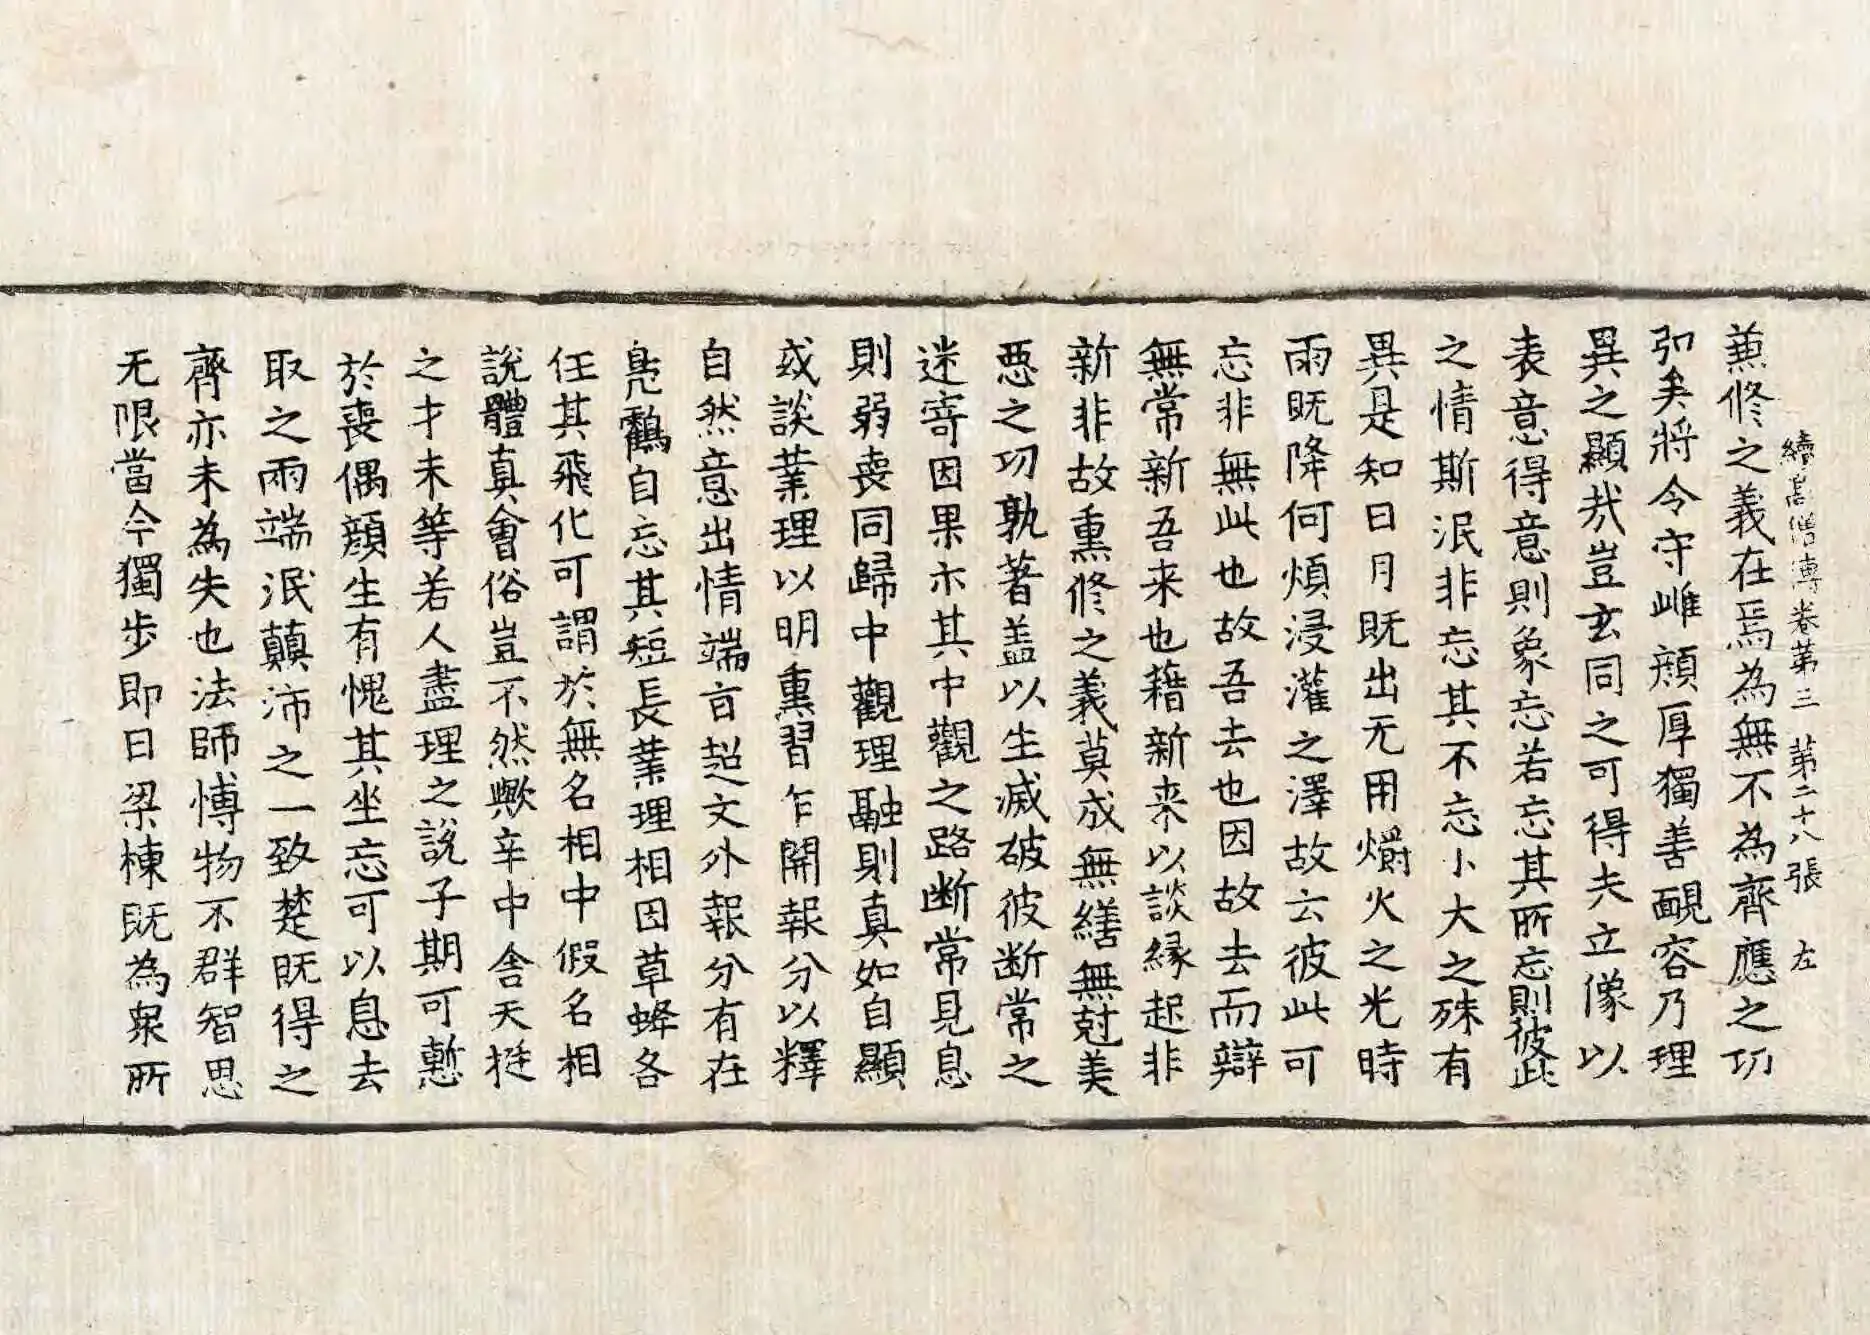 續高僧傳卷第三　第二十八張　左
兼修之義在焉為無不為齊應之功
弘矣將令守雌頹厚獨善靦容乃理
異之顯哉豈玄同之可得夫立像以
表意得意則象忘若忘其所忘則彼此
之情斯泯非忘其不忘小大之殊有
異是知日月既出无用爝火之光時
雨既降何煩浸灌之澤故云彼此可
忘非無此也故吾去也因故去而辯
無常新吾来也藉新来以談緣起非
新非故熏修之義莫成無繕無尅美
惡之功孰著盖以生滅破彼断常之
迷寄因果示其中觀之路断常見息
則弱喪同歸中觀理融則真如自顯
或談業理以明熏習乍開報分以釋
自然意出情端言超文外報分有在
鳧鶴自忘其短長業理相因草蜂各
任其飛化可謂於無名相中假名相
說體真會俗豈不然歟辛中舎天挺
之才未等若人盡理之說子期可慙
於喪偶顔生有愧其坐忘可以息去
取之兩端泯顛沛之一致楚既得之
齊亦未為失也法師博物不群智思
无限當今獨步即日梁棟既為衆所